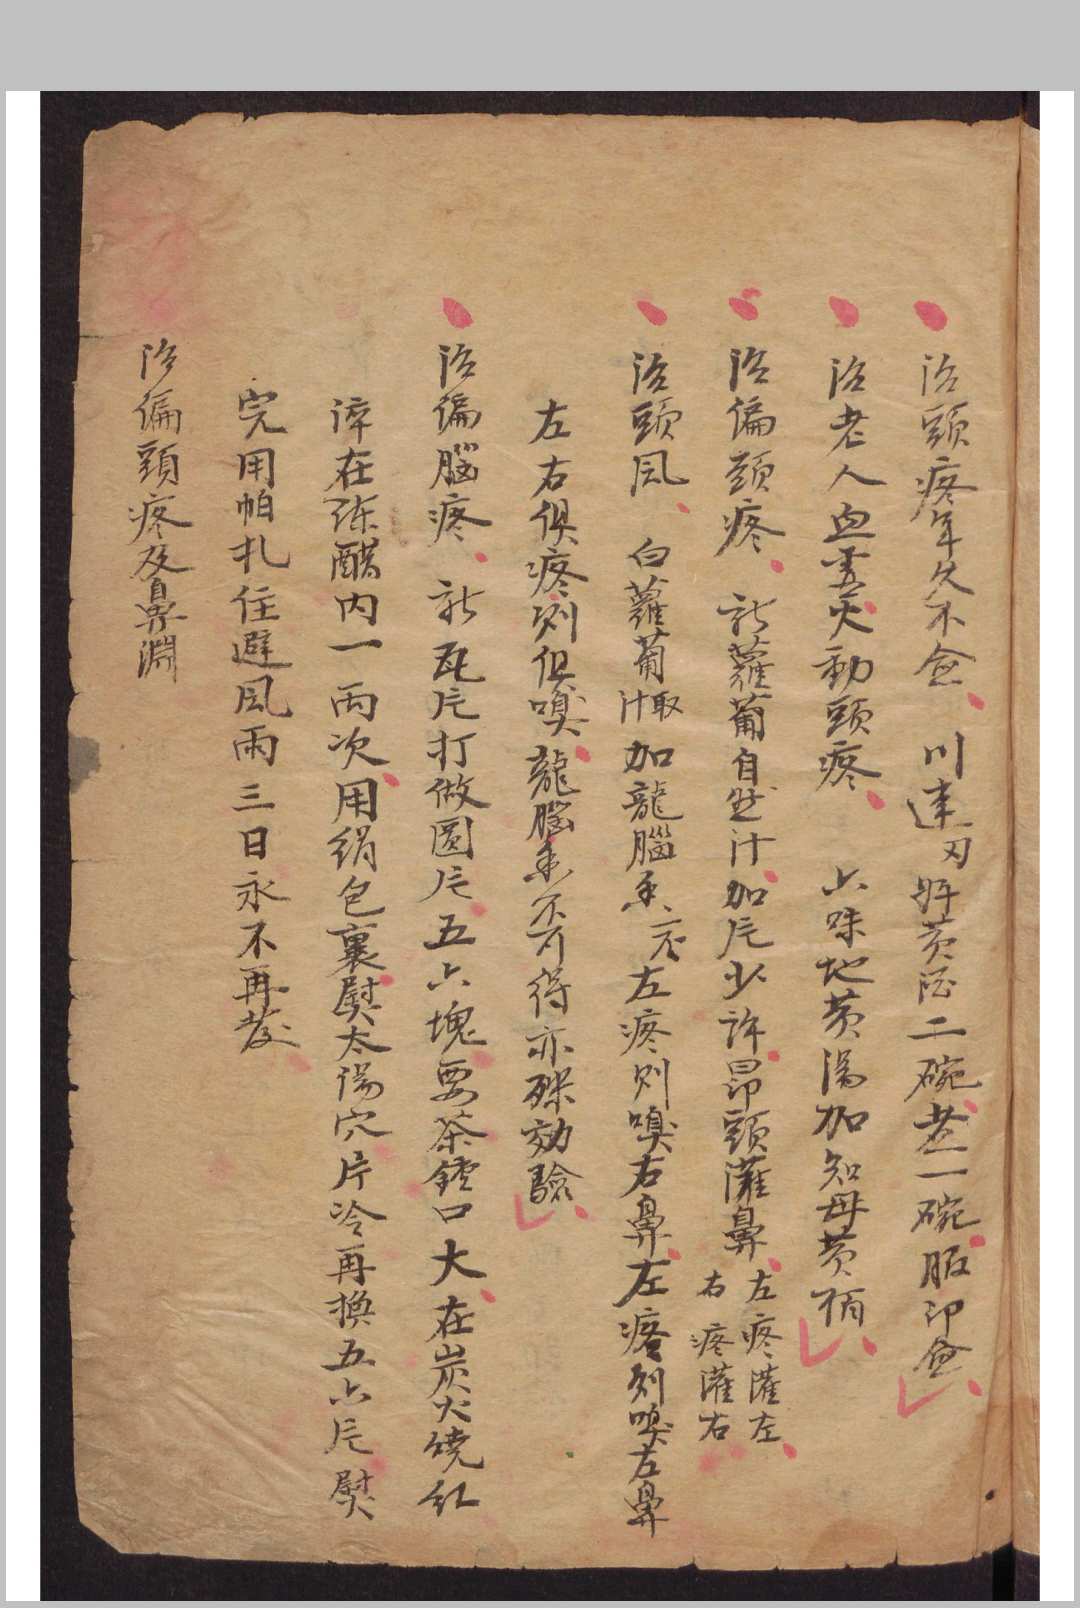 治頭疼年久不愈 川連刃 好黄酒二碗煮一碗服即愈
治老人血虚火動頭疼 六味地黄湯加知母黄栢
治偏頭疼 新蘿蔔自然汁加片少許昂頭灌鼻 左疼灌左 右疼灌右
治頭風 白蘿蔔取汁 加龍腦 左疼则嗅右鼻左疼则嗅左鼻
左右俱疼则俱嗅龍腦香不可得亦殊効驗
治偏腦疼 新瓦片打做圆片五六塊要茶鐘口大在炭火燒红
淬在陈醋内一兩次用绢包裹熨太陽穴片冷再换五六片熨
完用帕扎住避風雨三日永不再發
治偏頭疼及鼻淵